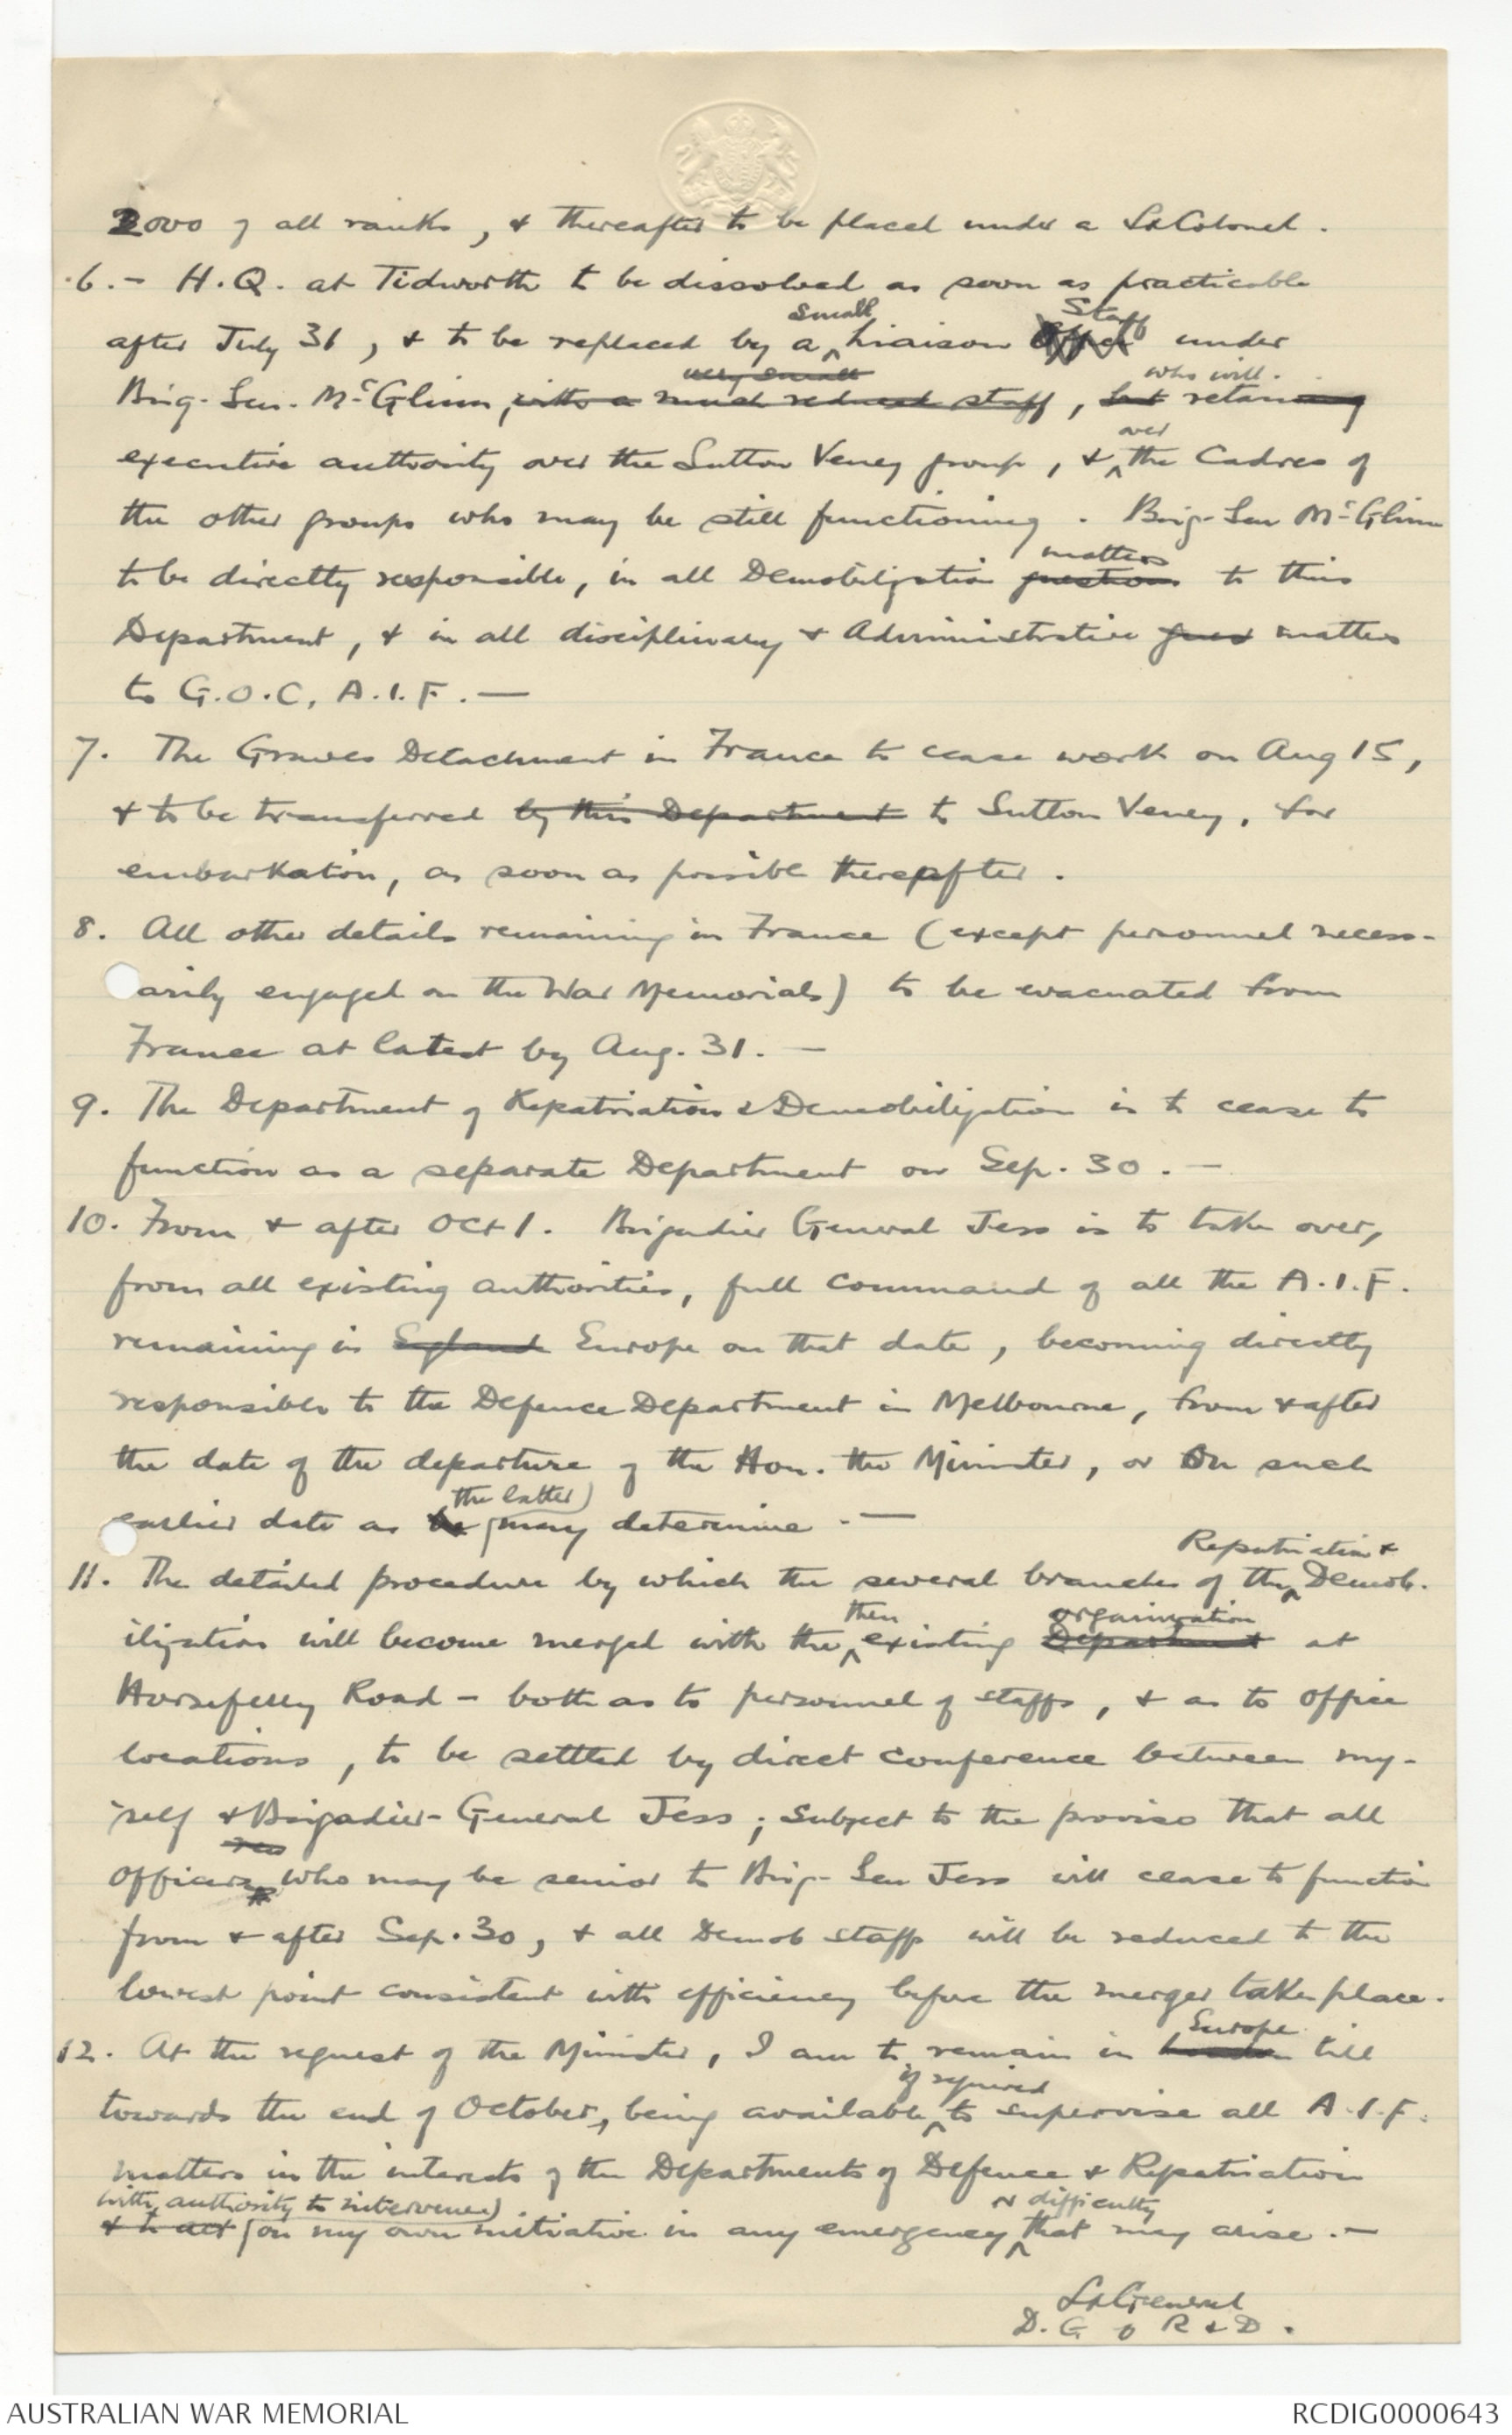 2000 of all ranks, & thereafter to be placed under a Lt Colonel.
6.- H.Q. at Tidworth to be dissolved as soon as practicable
small Staff
after July 31, & to be replaced by a Liaison Office under
very small who will
Brig-Gen. McGlinn, with a much reduced staff, but retaining
over
executive authority over the Sutton Veney group, & the Cadres of
the other groups who may be still functioning. Brig-Gen McGlinn
matters
to be directly responsible, in all Demobilization questions to this
Department, & in all disciplinary & Administrative ques matters
to G.O.C, A.I.F. —
7. The Graves Detachment in France to cease work on Aug 15,
& to be transferred by this Department to Sutton Veney, for
embarkation, as soon as possible thereafter.
8. All other details remaining in France (except personnel necess-
arily engaged on the War Memorials) to be evacuated from
France at latest by Aug. 31. —
9. The Department of Repatriation & Demobilization is to cease to
function as a separate Department on Sep. 30. —
10. From & after Oct 1. Brigadier General Jess is to take over,
from all existing authorities, full command of all the A.I.F.
remaining in England Europe on that date, becoming directly
responsible to the Defence Department in Melbourne, from & after
the date of the departure of the Hon. the Minister, or on such
the latter)
earlier date as he (may determine. —
Repatriation &
11. The detailed procedure by which the several branches of the Demob-
then organization
ilization will become merged with the existing Department at
Horseferry Road - both as to personnel of staffs, & as to office
locations, to be settled by direct conference between my-
self & Brigadier-General Jess; subject to the proviso that all
officers who may be senior to Brig-Gen Jess will cease to function
from & after Sep. 30, & all Demob staffs will be reduced to the
lowest point consistent with efficiency before the merger takes place.
Europe
12. At the request of the Minister, I am to remain in London till
if required
towards the end of October, being available to supervise all A.I.F.
matters in the interests of the Departments of Defence & Repatriation
with authority to intervene) or difficulty
& to act (on my own initiative in any emergency that may arise. —
Lt General
D. G of R & D.
AUSTRALIAN WAR MEMORIAL RCDIG0000643